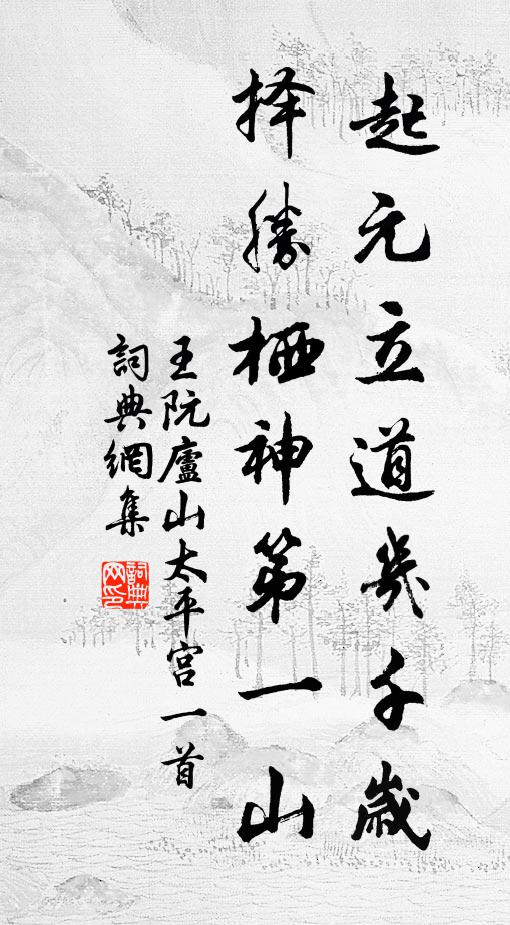 起元立道幾千歲
择勝栖神第一山
王阮廬山太平宫一首
詞典網集
詞典网印